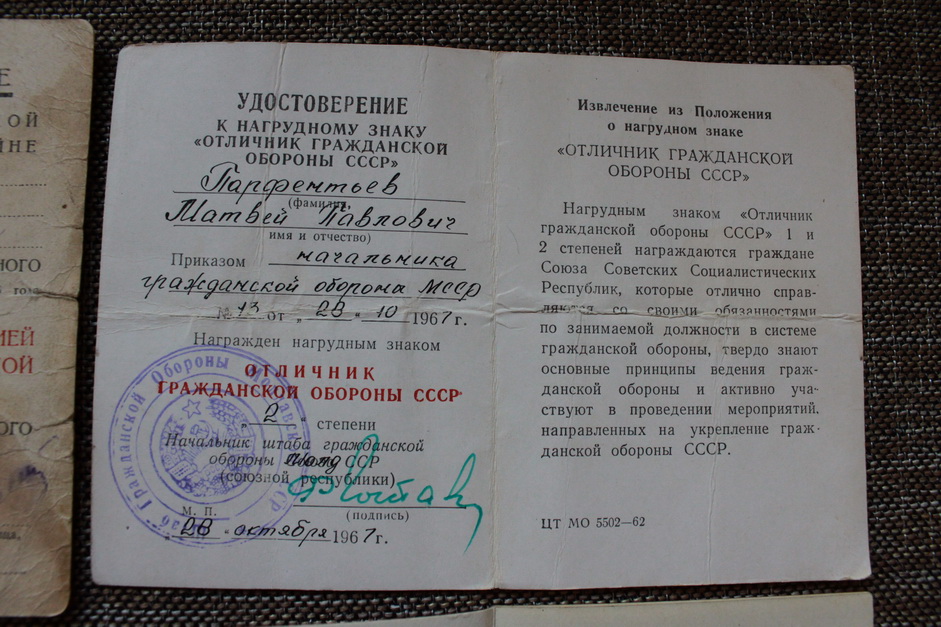 Е
ОЙ
ЙНЕ
НОГО
ИЕЙ
ОЙ
ОГО
УДОСТОВЕРЕНИЕ
К НАГРУДНОМУ ЗНАКУ
«ОТЛИЧНИК ГРАЖДАНСКОЙ
ОБОРОНЫ СССР»
Парфентьев
(фамилия,
Матвей Павлович
имя и отчество)
Приказом начальника
гражданской оборона МССР
№ 13 от „ 28 “ 10 1967 г.
Награжден нагрудным знаком
ОТЛИЧНИК
ГРАЖДАНСКОЙ ОБОРОНЫ СССР
„ 2 степени
Начальник штаба гражданской
обороны Молд ССР
(союзной республики)
(подпись)
М. П.
„ 28 “ октября 1967 г.
Гражданской Обороны
Извлечение из Положения
о нагрудном знаке
«ОТЛИЧНИК ГРАЖДАНСКОЙ
ОБОРОНЫ СССР»
Нагрудным знаком «Отличник
гражданской обороны СССР» 1 и
2 степеней награждаются граждане
Союза Советских Социалистических
Республик, которые отлично справ-
ляются со своими обязанностями
по занимаемой должности в системе
гражданской обороны, твердо знают
основные принципы ведения граж-
данской обороны и активно уча-
ствуют в проведении мероприятий,
направленных на укрепление граж-
данской обороны СССР.
ЦТ МО 5502—62